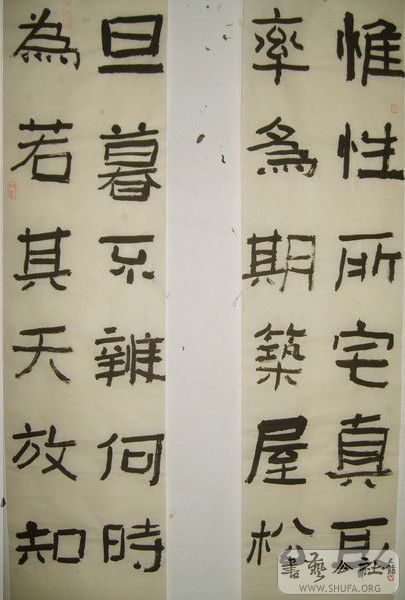 惟性所宅真
率為期築屋松
旦暮不辨何時
為若其天放知
書藝公社
WWW.SHUFA.ORG